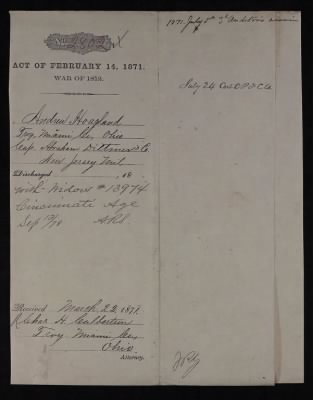 ACT OF FEBRUARY 14, 1871.
WAR OF 1812.
Andrew Hoagland
Troy, Miami Co, Ohio
Capt. Abraham Dittmars Co.
New Jersey Mil
Discharged , 18 .
With Widow # 13974
Cincinnati Age
Sep 12/78 ARS
Received March 22 1871.
Char H. Culbertson
Troy Miami Co,
Ohio
Attorney.
1871 July 5th 3d Auditor's
July 24